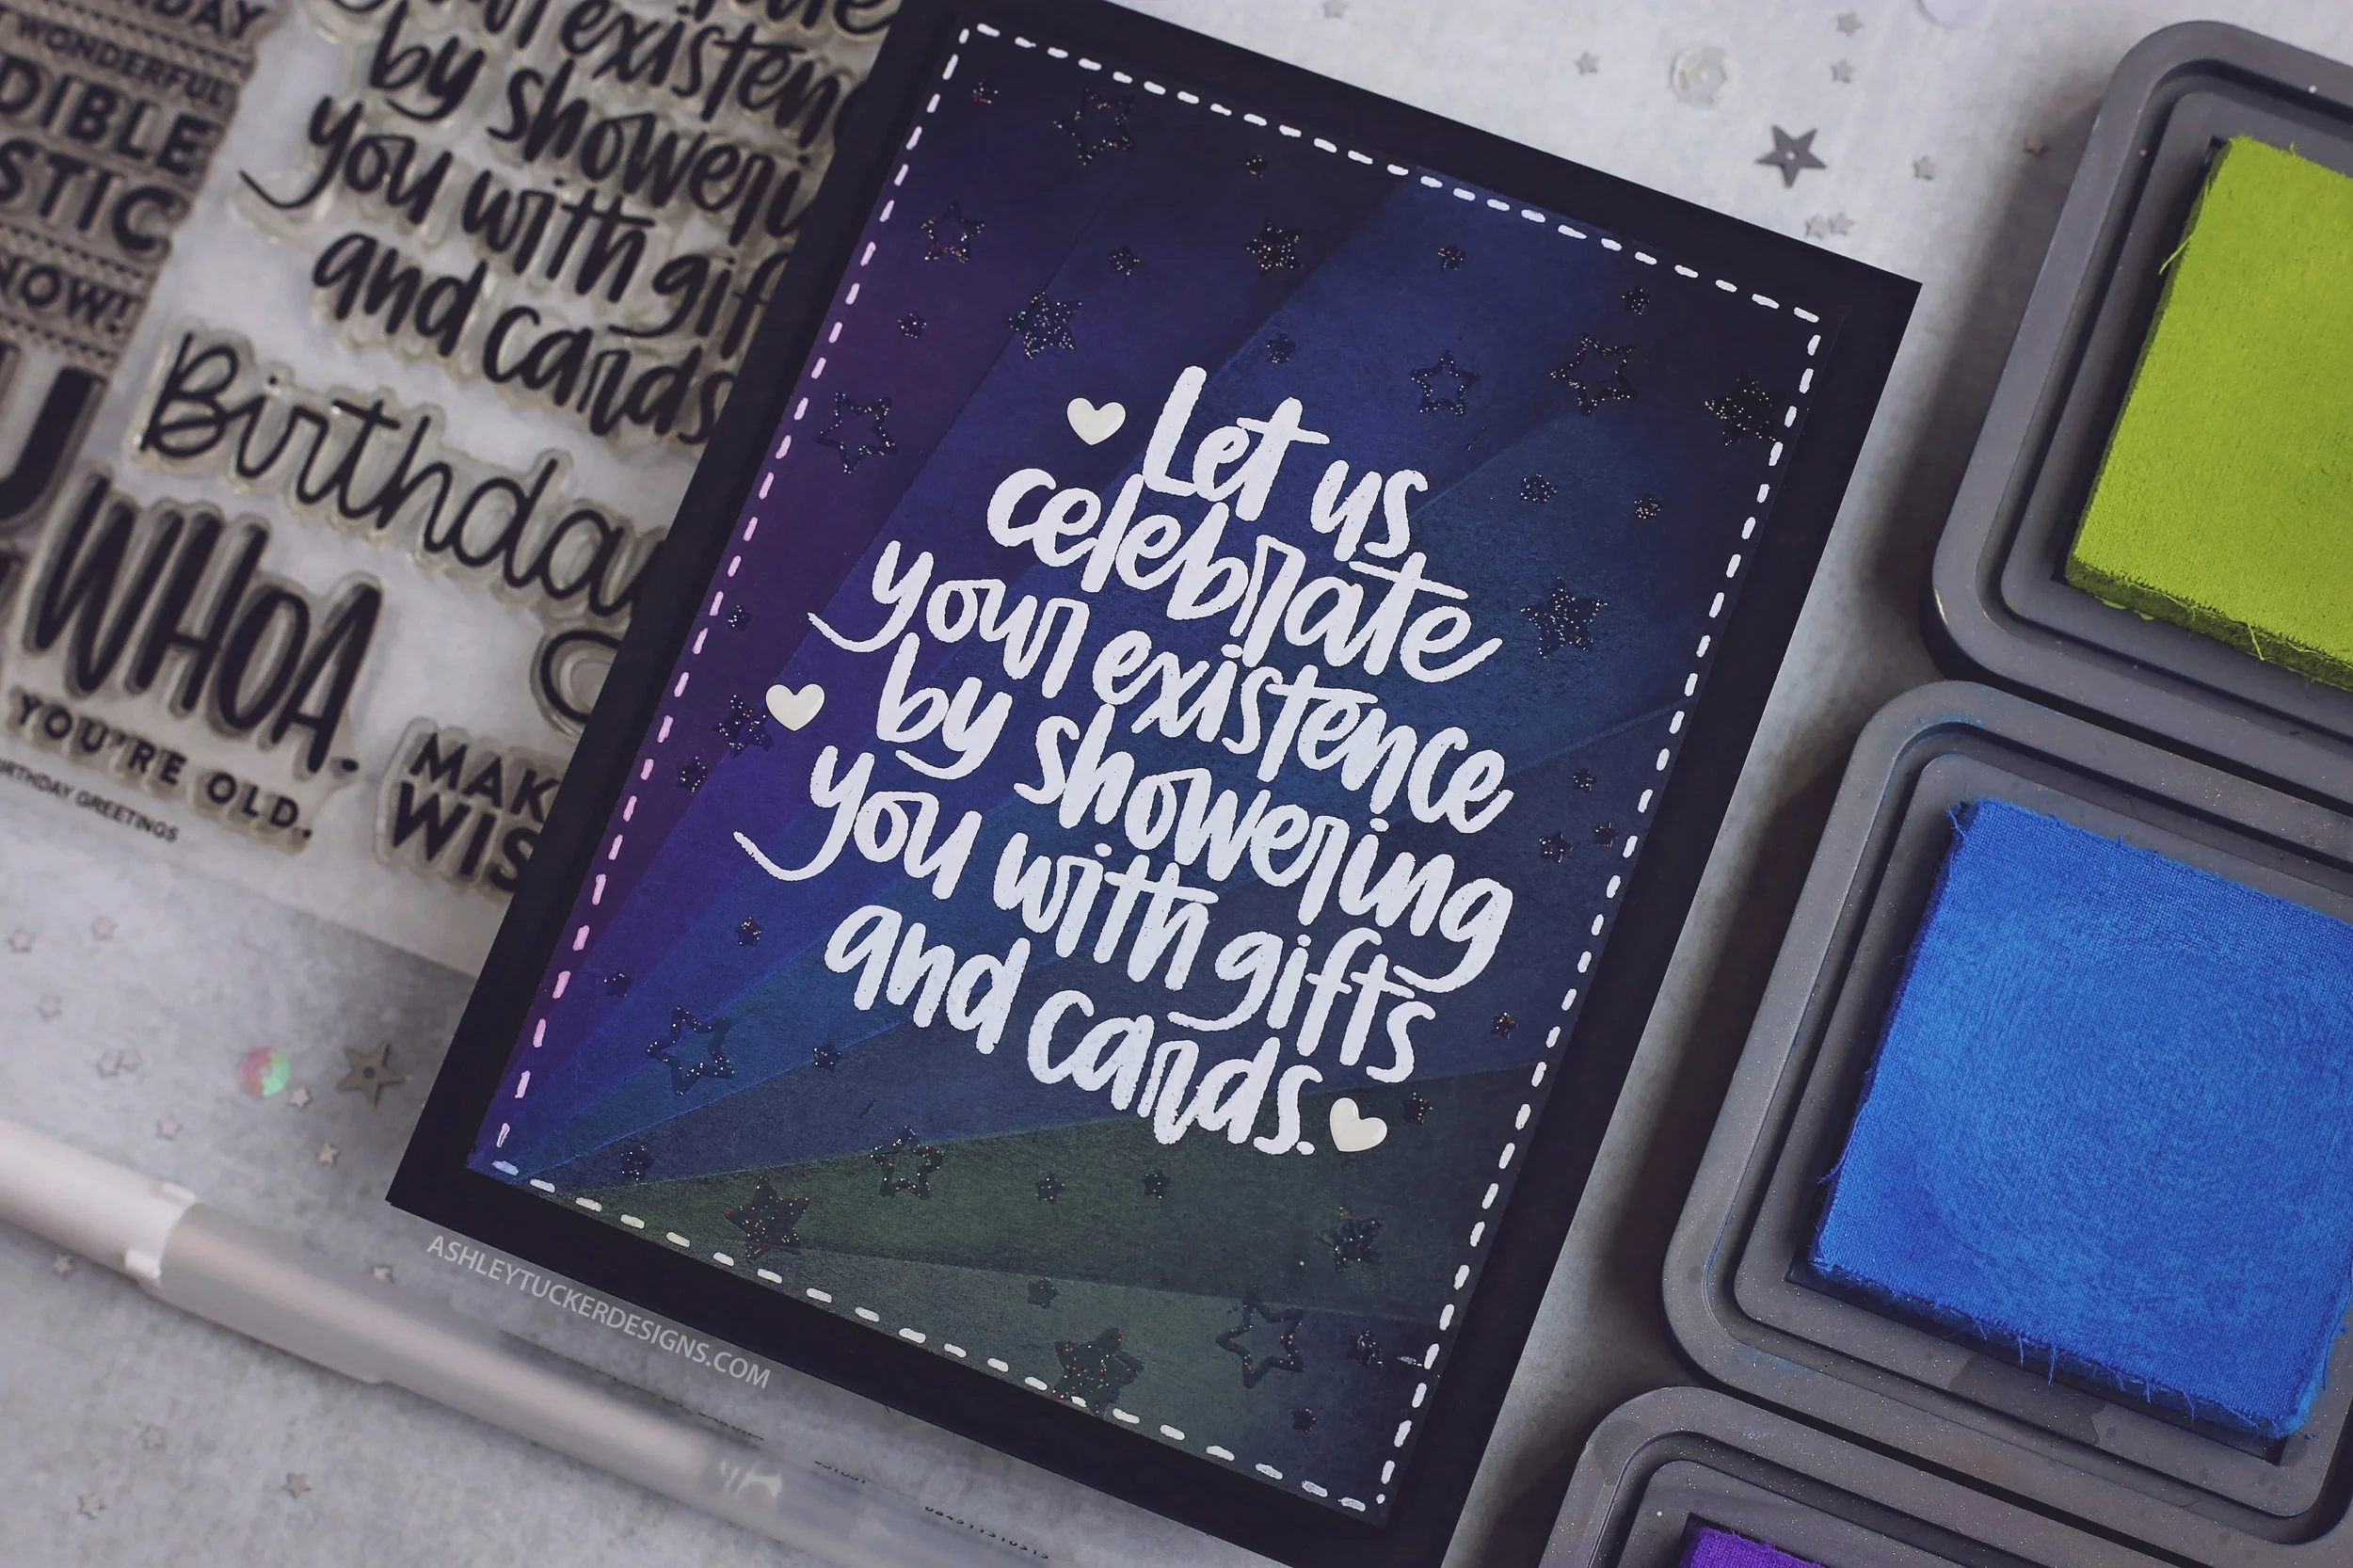 WONDERFUL
NOW!
existen
by showeri
you with gif
and cards
Birthday
WHOA.
YOU'RE OLD.
BIRTHDAY GREETINGS
Let us
celebrate
your existence
by showering
you with gifts
and cards.
ASHLEYTUCKERDESIGNS.COM